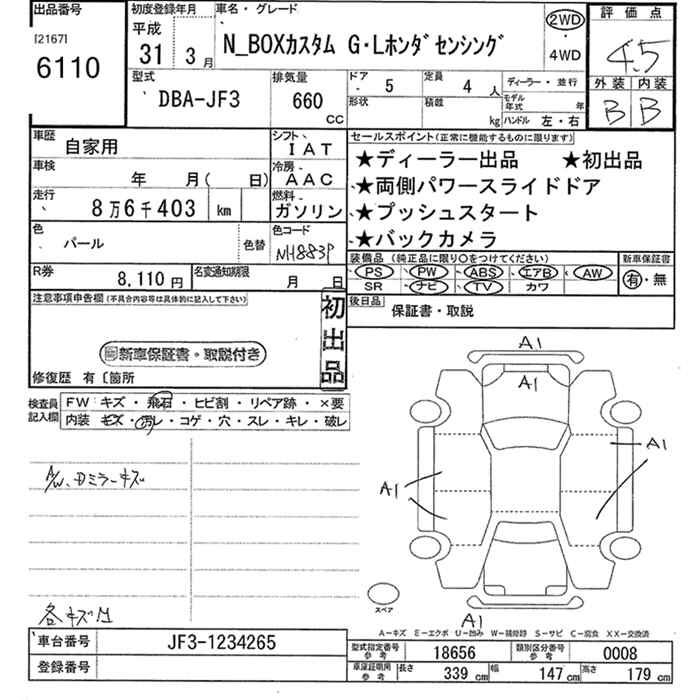 出品番号
[2167]
6110
初度登録年月
平成
31 3月
車名・グレード
N_BOXカスタム G・Lホンダセンシング
2WD
・
4WD
評価点
4.5
外装 内装
B B
型式
DBA-JF3
排気量
660
cc
ドア
5
定員
4人
ディーラー・並行
形状
積載
kg
モデル年式
年
ハンドル 左・右
車歴
自家用
シフト
IAT
車検
年 月( 日)
冷房
AAC
走行
8万6千403 km
燃料
ガソリン
色
パール
色替
色コード
NH883P
R券
8,110円
名変通知期限
月 日
セールスポイント(正常に機能するものに限ります)
★ディーラー出品 ★初出品
★両側パワースライドドア
★プッシュスタート
★バックカメラ
装備品(純正品に限り○をつけてください)
PS PW ABS エアB AW
SR ナビ TV カワ
新車保証書
有・無
後日品
保証書・取説
注意事項申告欄(不具合内容等は具体的に記入して下さい)
新車保証書・取説付き
初出品
修復歴 有〔箇所
検査員記入欄
FW キズ・飛石・ヒビ割・リペア跡・×要
内装 キズ・汚レ・コゲ・穴・スレ・キレ・破レ
A/W、Dミラーキズ
各キズ凹
A1
A1
A1
A1
A1
スペア
A−キズ E−エクボ U−凹み W−補修跡 S−サビ C−腐食 XX−交換済
車台番号
JF3-1234265
登録番号
型式指定番号
参考
18656
類別区分番号
参考
0008
車庫証明用
参考
長さ 339 cm 幅 147 cm 高さ 179 cm